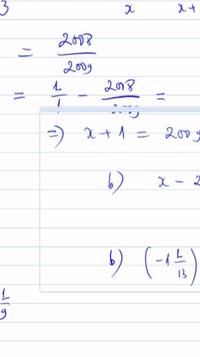 3 x x +
= 2008/2009
= 1/1 - 2008/2009 =
=> x + 1 = 2009
b) x - 2
b) (-1 1/13)
1/9